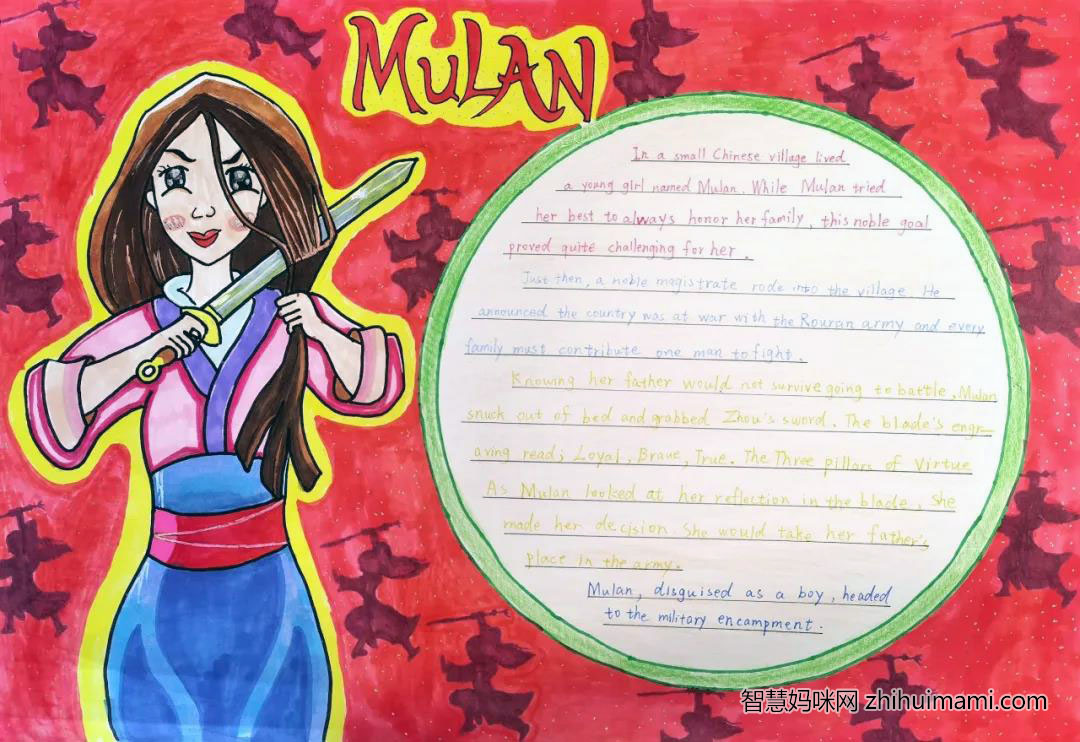 MULAN
In a small Chinese village lived
a young girl named Mulan. While Mulan tried
her best to always honor her family, this noble goal
proved quite challenging for her.
Just then, a noble magistrate rode into the village. He
announced the country was at war with the Rouran army and every
family must contribute one man to fight.
Knowing her father would not survive going to battle, Mulan
snuck out of bed and grabbed Zhou's sword. The blade's engr-
aving read; Loyal, Brave, True. The Three pillars of Virtue
As Mulan looked at her reflection in the blade, She
made her decision. She would take her father's
place in the army.
Mulan, disguised as a boy, headed
to the military encampment.
智慧妈咪网 zhihuimami.com